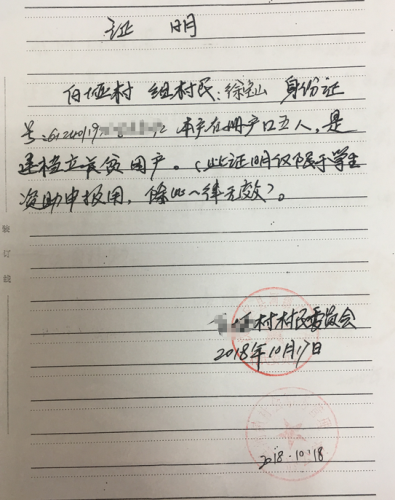 证 明
白垭村 组村民:徐 身份证
号:612401197 2 本户在册户口五人,是
建档立卡贫困户。(此证明仅限于学生
资助申报用,除此一律无效)。
装订线
村村民委员会
2018年10月17日
2018.10.18